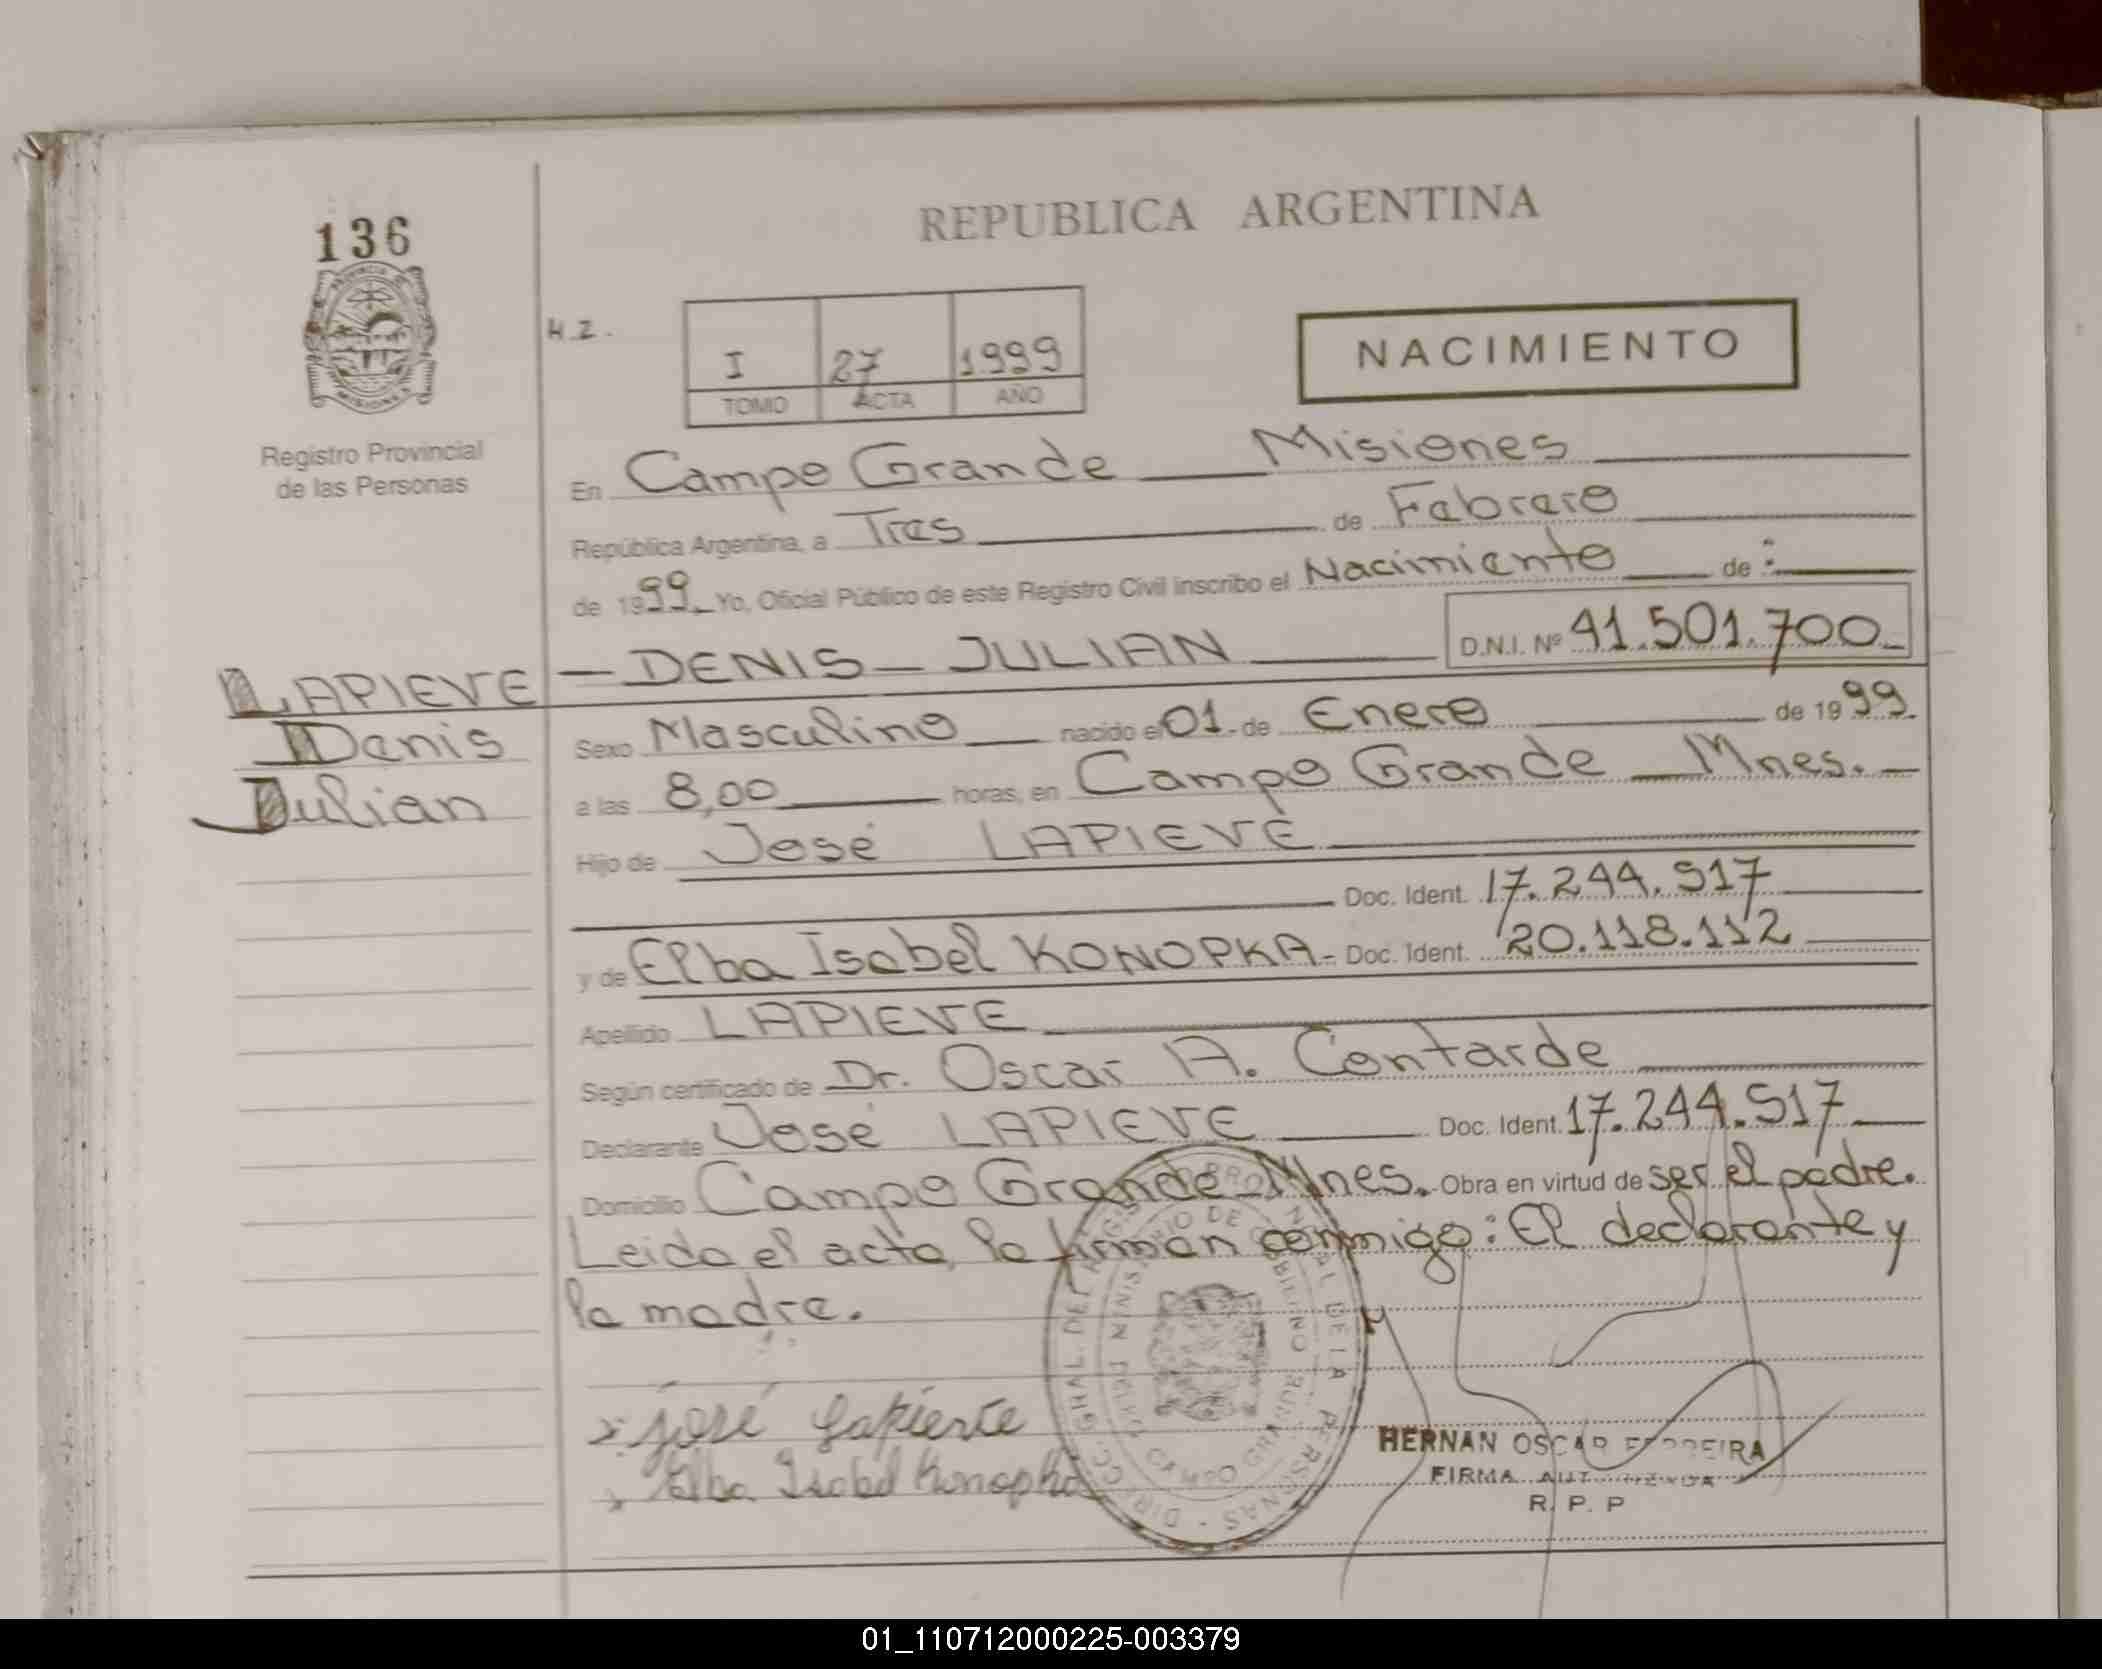 136
REPUBLICA ARGENTINA
PROVINCIA DE MISIONES
Registro Provincial
de las Personas
H.Z.
I 27 1.999
TOMO ACTA AÑO
NACIMIENTO
En Campo Grande Misiones
República Argentina, a Tres de Febrero
de 1999 Yo, Oficial Público de este Registro Civil inscribo el Nacimiento de :
LAPIEVE - DENIS - JULIAN D.N.I. Nº 41.501.700
Denis
Julian
Sexo Masculino nacido el 01 de Enero de 1999
a las 8,00 horas, en Campo Grande Mnes.
Hijo de José LAPIEVE
Doc. Ident. 17.244.517
y de Elba Isabel KONOPKA - Doc. Ident. 20.118.112
Apellido LAPIEVE
Según certificado de Dr. Oscar A. Contarde
Declarante José LAPIEVE Doc. Ident. 17.244.517
Domicilio Campo Grande Mnes. Obra en virtud de ser el padre.
Leida el acta, la firman conmigo: El declarante y
la madre.
José Lapieve
Elba Isabel Konopka
HERNAN OSCAR FERREIRA
FIRMA AUTORIZADA
R. P. P
01_110712000225-003379